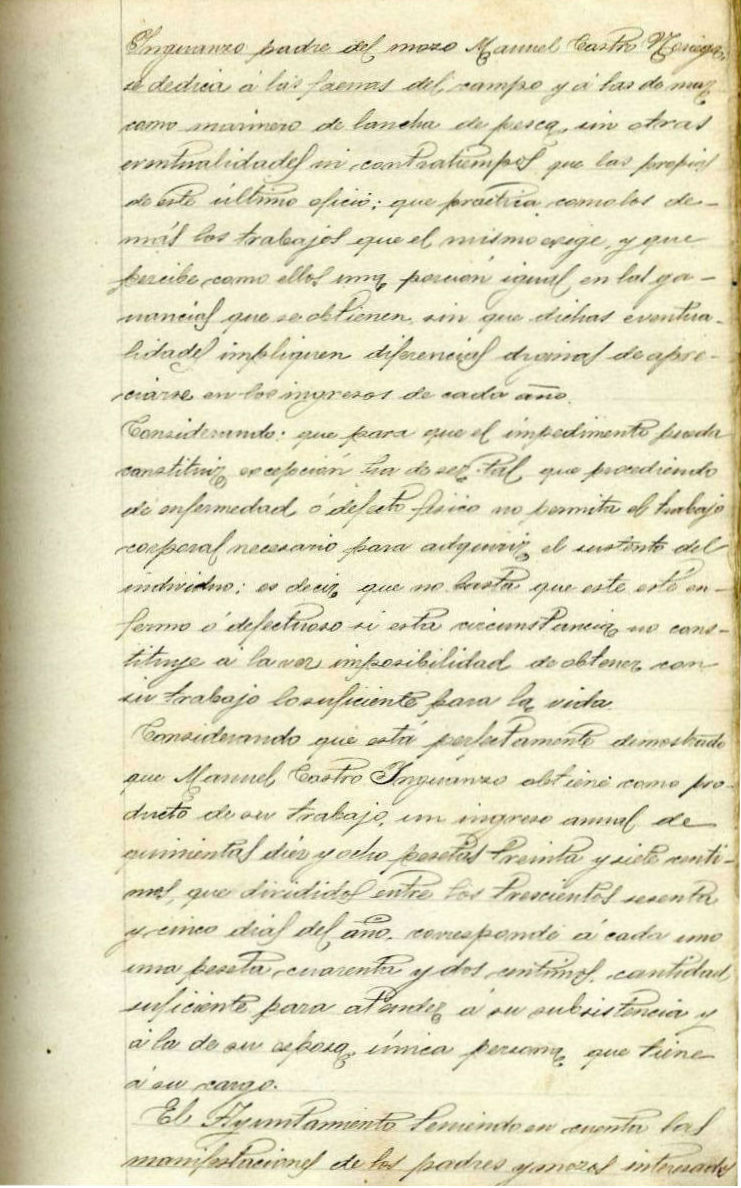 Inguanzo padre del mozo Manuel Castro Noriega,
se dedica á las faenas del campo y á las de mar
como marinero de lancha de pesca, sin otras
eventualidades ni contratiempos que las propias
de este último oficio; que practica como los de-
más los trabajos que el mismo exige, y que
percibe como ellos una porción igual en las ga-
nancias que se obtienen, sin que dichas eventua-
lidades impliquen diferencias dignas de apre-
ciarse en los ingresos de cada año.
Considerando: que para que el impedimento pueda
constituir excepción ha de ser tal que procediendo
de enfermedad ó defecto físico no permita el trabajo
corporal necesario para adquirir el sustento del
individuo; es decir que no basta que este esté en-
fermo ó defectuoso si esta circunstancia no cons-
tituye á la vez imposibilidad de obtener con
su trabajo lo suficiente para la vida.
Considerando que está perfectamente demostrado
que Manuel Castro Inguanzo obtiene como pro-
ducto de su trabajo, un ingreso anual de
quinientas diez y ocho pesetas treinta y siete centi-
mos, que divididos entre los trescientos sesenta
y cinco dias del año, corresponde á cada uno
una peseta, cuarenta y dos centimos, cantidad
suficiente para atender á su subsistencia y
á la de su esposa, única persona que tiene
á su cargo.
El Ayuntamiento teniendo en cuenta las
manifestaciones de los padres y mozos interesados